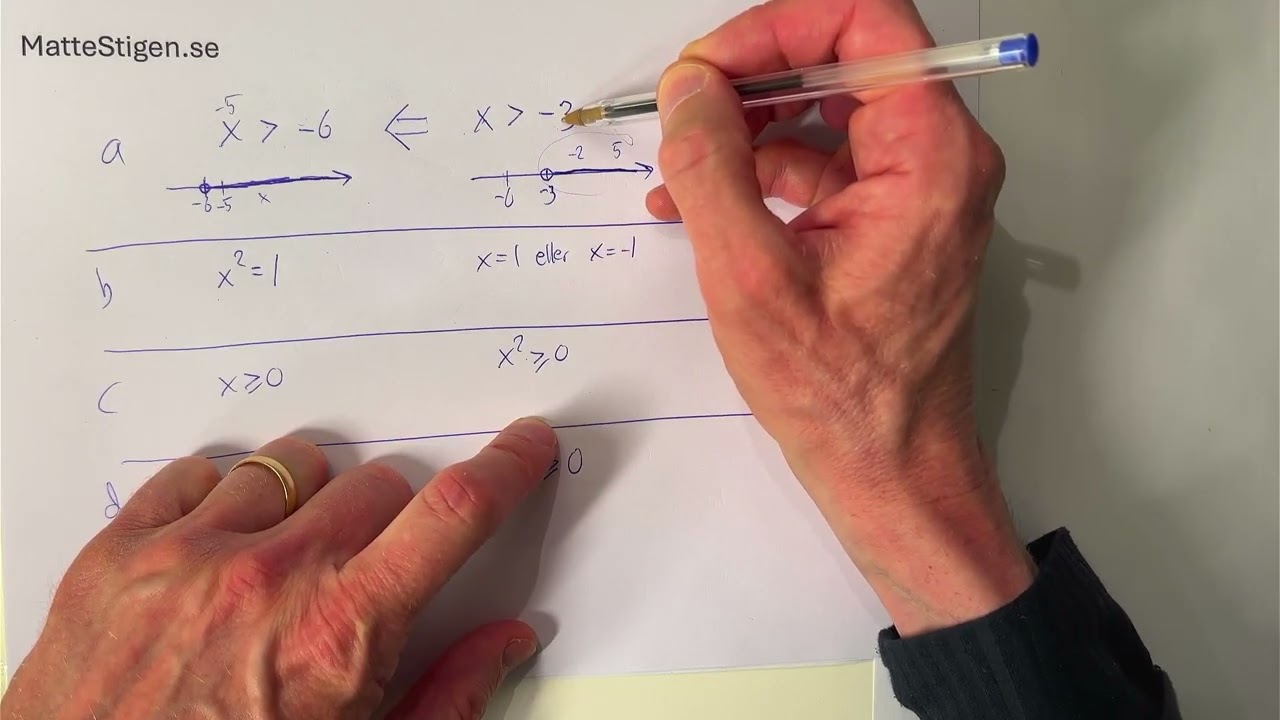 MatteStigen.se
-5
a x > -6 ⇐ x > -3
-2 5
-6 -5 x -6 -3
b x² = 1 x = 1 eller x = -1
c x ≥ 0 x² ≥ 0
d ≥ 0